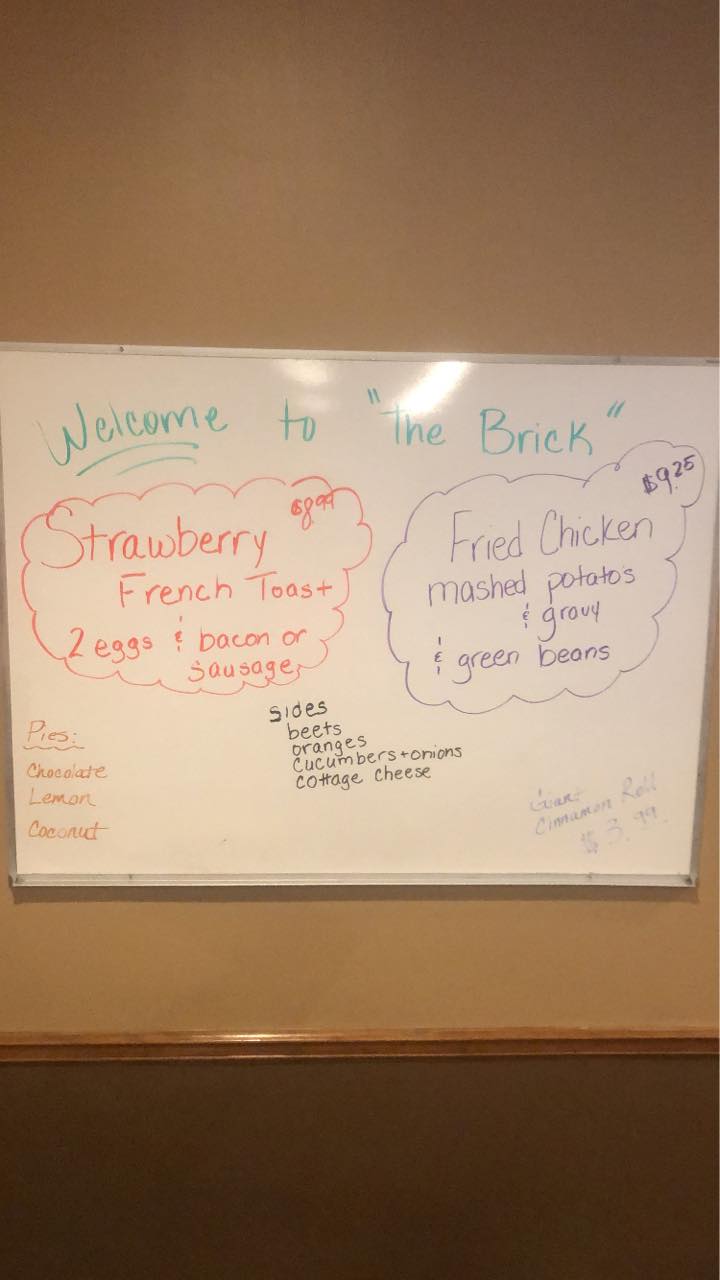 Welcome to "The Brick"
$8.99
Strawberry
French Toast
2 eggs & bacon or
sausage
$9.25
Fried Chicken
mashed potato's
& gravy
& green beans
Pies:
Chocolate
Lemon
Coconut
sides
beets
oranges
cucumbers + onions
cottage cheese
Giant
Cinnamon Roll
$3.99